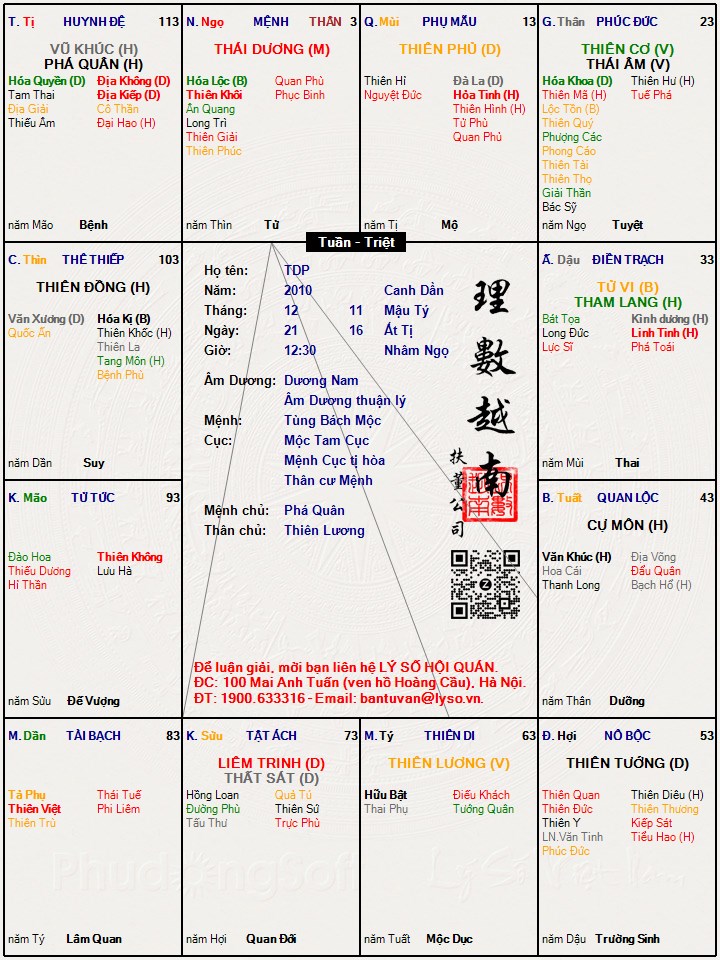 T. Tị HUYNH ĐỆ 113
VŨ KHÚC (H)
PHÁ QUÂN (H)
Hóa Quyền (D) Địa Không (D)
Tam Thai Địa Kiếp (D)
Địa Giải Cô Thần
Thiếu Âm Đại Hao (H)
năm Mão Bệnh
N. Ngọ MỆNH THÂN 3
THÁI DƯƠNG (M)
Hóa Lộc (B) Quan Phù
Thiên Khôi Phục Binh
Ân Quang
Long Trì
Thiên Giải
Thiên Phúc
năm Thìn Tử
Q. Mùi PHỤ MẪU 13
THIÊN PHỦ (D)
Thiên Hỉ Đà La (D)
Nguyệt Đức Hỏa Tinh (H)
Thiên Hình (H)
Tử Phù
Quan Phủ
năm Tị Mộ
G. Thân PHÚC ĐỨC 23
THIÊN CƠ (V)
THÁI ÂM (V)
Hóa Khoa (D) Thiên Hư (H)
Thiên Mã (H) Tuế Phá
Lộc Tồn (B)
Thiên Quý
Phượng Các
Phong Cáo
Thiên Tài
Thiên Thọ
Giải Thần
Bác Sỹ
năm Ngọ Tuyệt
Tuần - Triệt
C. Thìn THÊ THIẾP 103
THIÊN ĐỒNG (H)
Văn Xương (D) Hóa Kị (B)
Quốc Ấn Thiên Khốc (H)
Thiên La
Tang Môn (H)
Bệnh Phù
năm Dần Suy
Họ tên: TDP
Năm: 2010 Canh Dần
Tháng: 12 11 Mậu Tý
Ngày: 21 16 Ất Tị
Giờ: 12:30 Nhâm Ngọ
Âm Dương: Dương Nam
Âm Dương thuận lý
Mệnh: Tùng Bách Mộc
Cục: Mộc Tam Cục
Mệnh Cục tị hòa
Thân cư Mệnh
Mệnh chủ: Phá Quân
Thân chủ: Thiên Lương
理數越南
扶董公司
Z
Để luận giải, mời bạn liên hệ LÝ SỐ HỘI QUÁN.
ĐC: 100 Mai Anh Tuấn (ven hồ Hoàng Cầu), Hà Nội.
ĐT: 1900.633316 - Email: bantuvan@lyso.vn.
Ấ. Dậu ĐIỀN TRẠCH 33
TỬ VI (B)
THAM LANG (H)
Bát Tọa Kình dương (H)
Long Đức Linh Tinh (H)
Lực Sĩ Phá Toái
năm Mùi Thai
K. Mão TỬ TỨC 93
Đào Hoa Thiên Không
Thiếu Dương Lưu Hà
Hỉ Thần
năm Sửu Đế Vượng
B. Tuất QUAN LỘC 43
CỰ MÔN (H)
Văn Khúc (H) Địa Võng
Hoa Cái Đẩu Quân
Thanh Long Bạch Hổ (H)
năm Thân Dưỡng
M. Dần TÀI BẠCH 83
Tả Phụ Thái Tuế
Thiên Việt Phi Liêm
Thiên Trù
năm Tý Lâm Quan
K. Sửu TẬT ÁCH 73
LIÊM TRINH (D)
THẤT SÁT (D)
Hồng Loan Quả Tú
Đường Phù Thiên Sứ
Tấu Thư Trực Phù
năm Hợi Quan Đới
M. Tý THIÊN DI 63
THIÊN LƯƠNG (V)
Hữu Bật Điếu Khách
Thai Phụ Tướng Quân
năm Tuất Mộc Dục
Đ. Hợi NÔ BỘC 53
THIÊN TƯỚNG (D)
Thiên Quan Thiên Diêu (H)
Thiên Đức Thiên Thương
Thiên Y Kiếp Sát
LN.Văn Tinh Tiểu Hao (H)
Phúc Đức
năm Dậu Trường Sinh
PhudongSoft
Lý Số Việt Nam